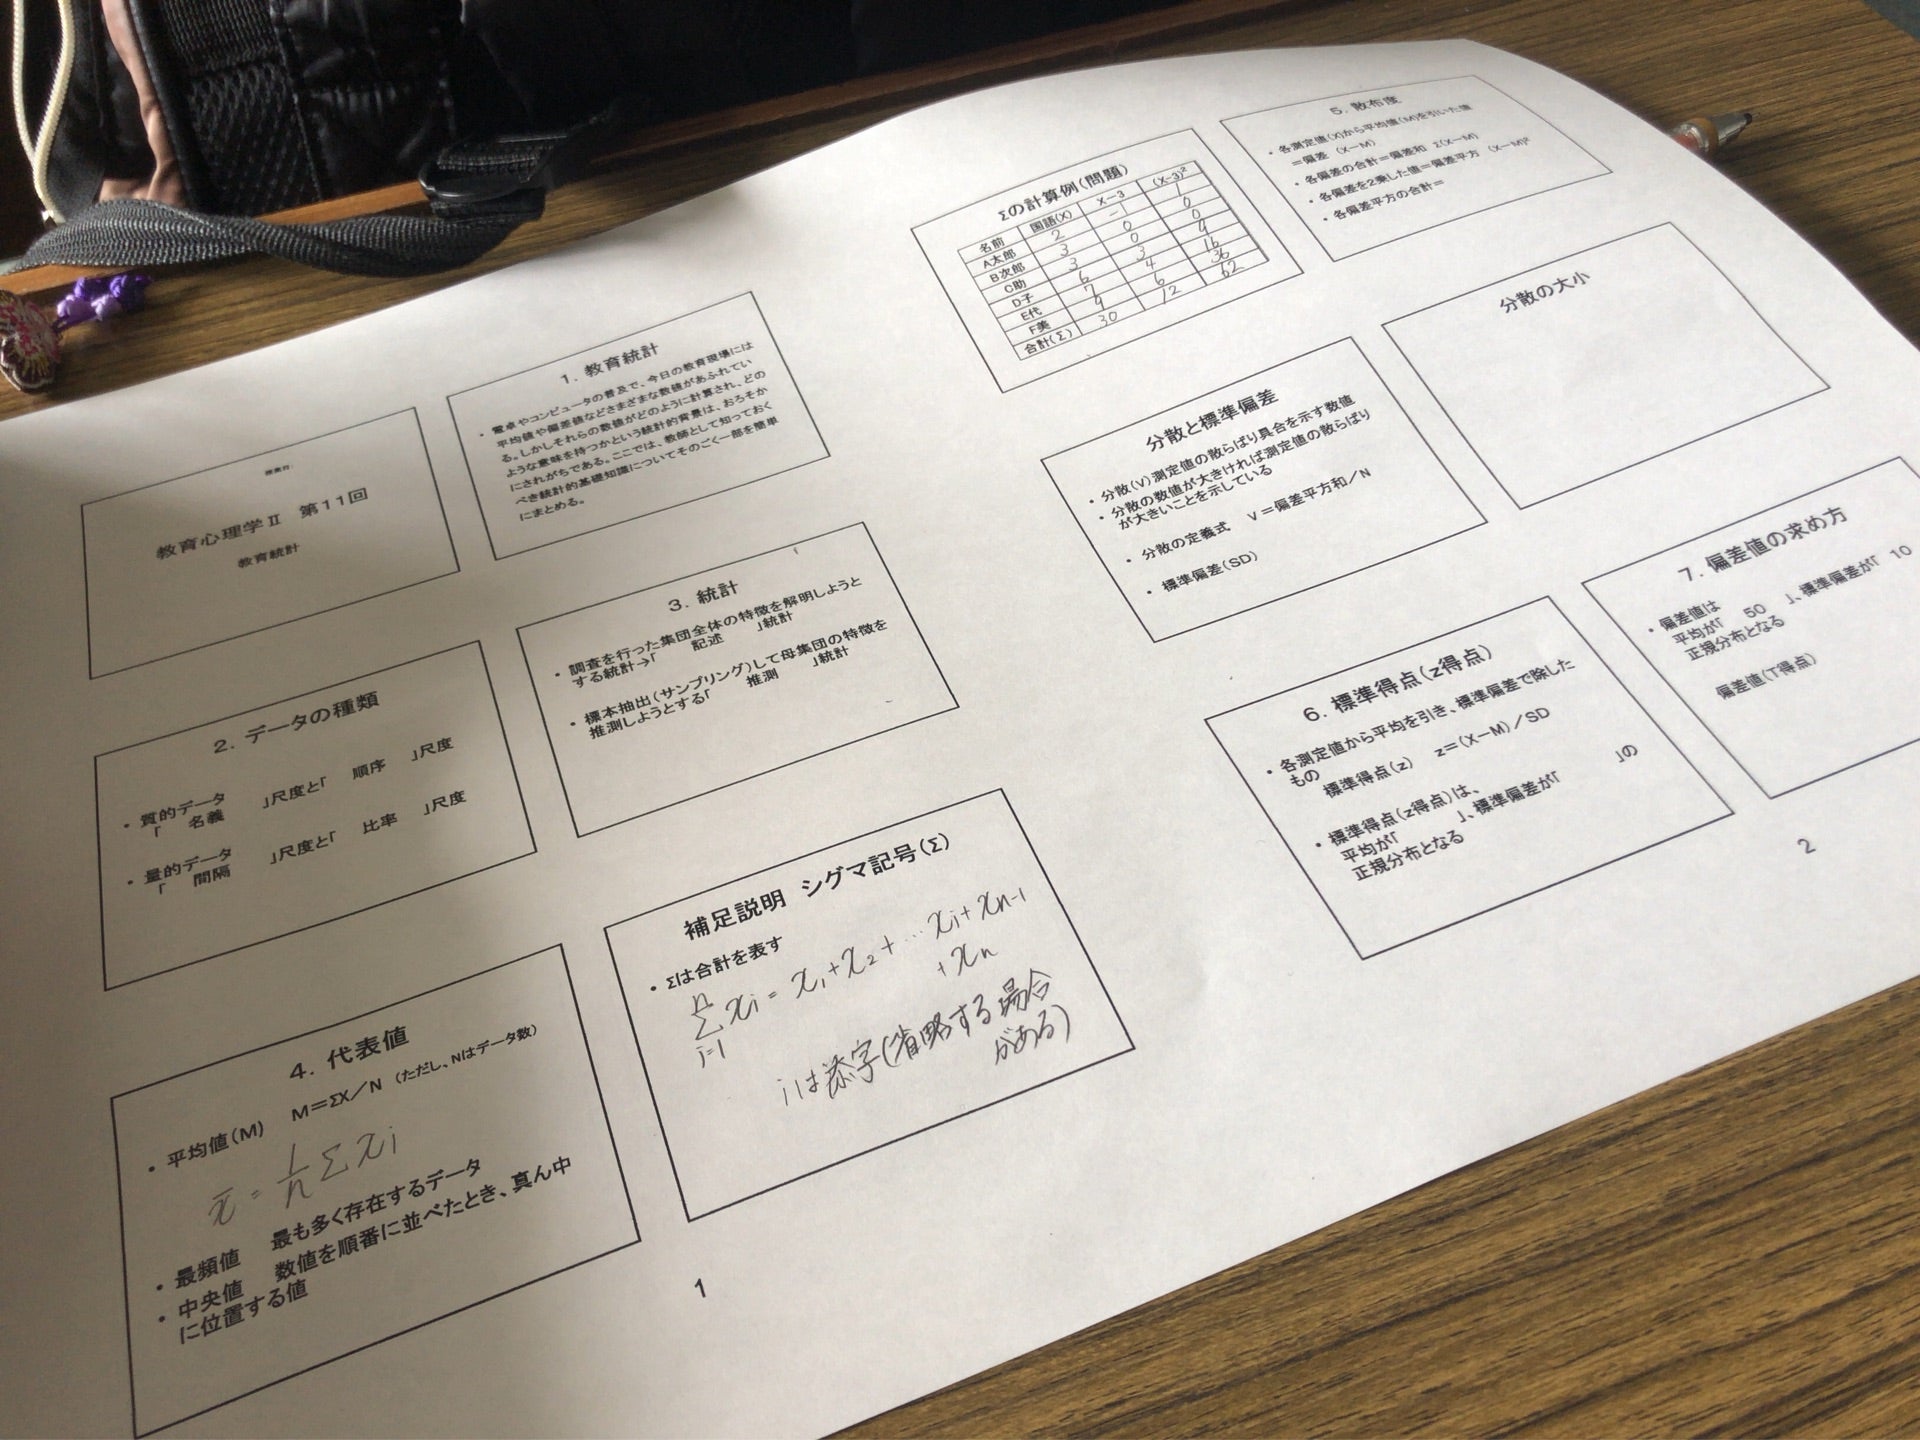 教育心理学Ⅱ 第11回
教育統計
1. 教育統計
・電卓やコンピュータの普及で、今日の教育現場には
平均値や偏差値などさまざまな数値があふれてい
る。しかしそれらの数値がどのように計算され、どの
ような意味を持つかという統計的背景は、おろそか
にされがちである。ここでは、教師として知っておく
べき統計的基礎知識についてそのごく一部を簡単
にまとめる。
2. データの種類
・質的データ
「 名義 」尺度と「 順序 」尺度
・量的データ
「 間隔 」尺度と「 比率 」尺度
3. 統計
・調査を行った集団全体の特徴を解明しようと
する統計→「 記述 」統計
・標本抽出(サンプリング)して母集団の特徴を
推測しようとする「 推測 」統計
4. 代表値
・平均値(M) M=ΣX/N (ただし、Nはデータ数)
x̄ = 1/n Σxi
・最頻値 最も多く存在するデータ
・中央値 数値を順番に並べたとき、真ん中
に位置する値
補足説明 シグマ記号(Σ)
・Σは合計を表す
n
Σ xi = x1 + x2 + … xi + xn-1
i=1
+ xn
iは添字(省略する場合
がある)
1
Σの計算例(問題)
名前 国語(X) X-3 (X-3)²
A太郎 2 -1 1
B次郎 3 0 0
C助 3 0 0
D子 6 3 9
E代 7 4 16
F美 9 6 36
合計(Σ) 30 12 62
5. 散布度
・各測定値(X)から平均値(M)を引いた値
=偏差 (X-M)
・各偏差の合計=偏差和 Σ(X-M)
・各偏差を2乗した値=偏差平方 (X-M)²
・各偏差平方の合計=
分散と標準偏差
・分散(V)測定値の散らばり具合を示す数値
・分散の数値が大きければ測定値の散らばり
が大きいことを示している
・分散の定義式 V=偏差平方和/N
・標準偏差(SD)
分散の大小
6. 標準得点(z得点)
・各測定値から平均を引き、標準偏差で除した
もの
標準得点(z) z=(X-M)/SD
・標準得点(z得点)は、
平均が「 」、標準偏差が「 」の
正規分布となる
7. 偏差値の求め方
・偏差値は
平均が「 50 」、標準偏差が「 10
正規分布となる
偏差値(T得点)
2